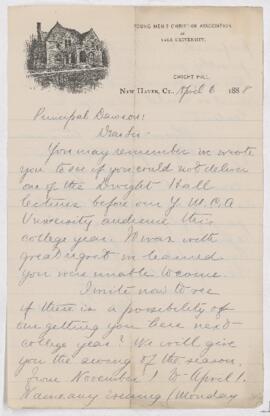 YOUNG MEN'S CHRISTIAN ASSOCIATION
OF
YALE UNIVERSITY.
DWIGHT HALL
NEW HAVEN, CT., April 6 1888
Principal Dawson:
Dear Sir
You may remember we wrote
you to see if you could not deliver
one of the Dwight Hall
lectures before our Y. M. C. A
University audience this
college year. It was with
great regret we learned
you were unable to come.
I write now to see
if there is a possibility of
our getting you here next
college year? We will give
you the swing of the season,
from November 1 to April 1.
Name any evening (Monday